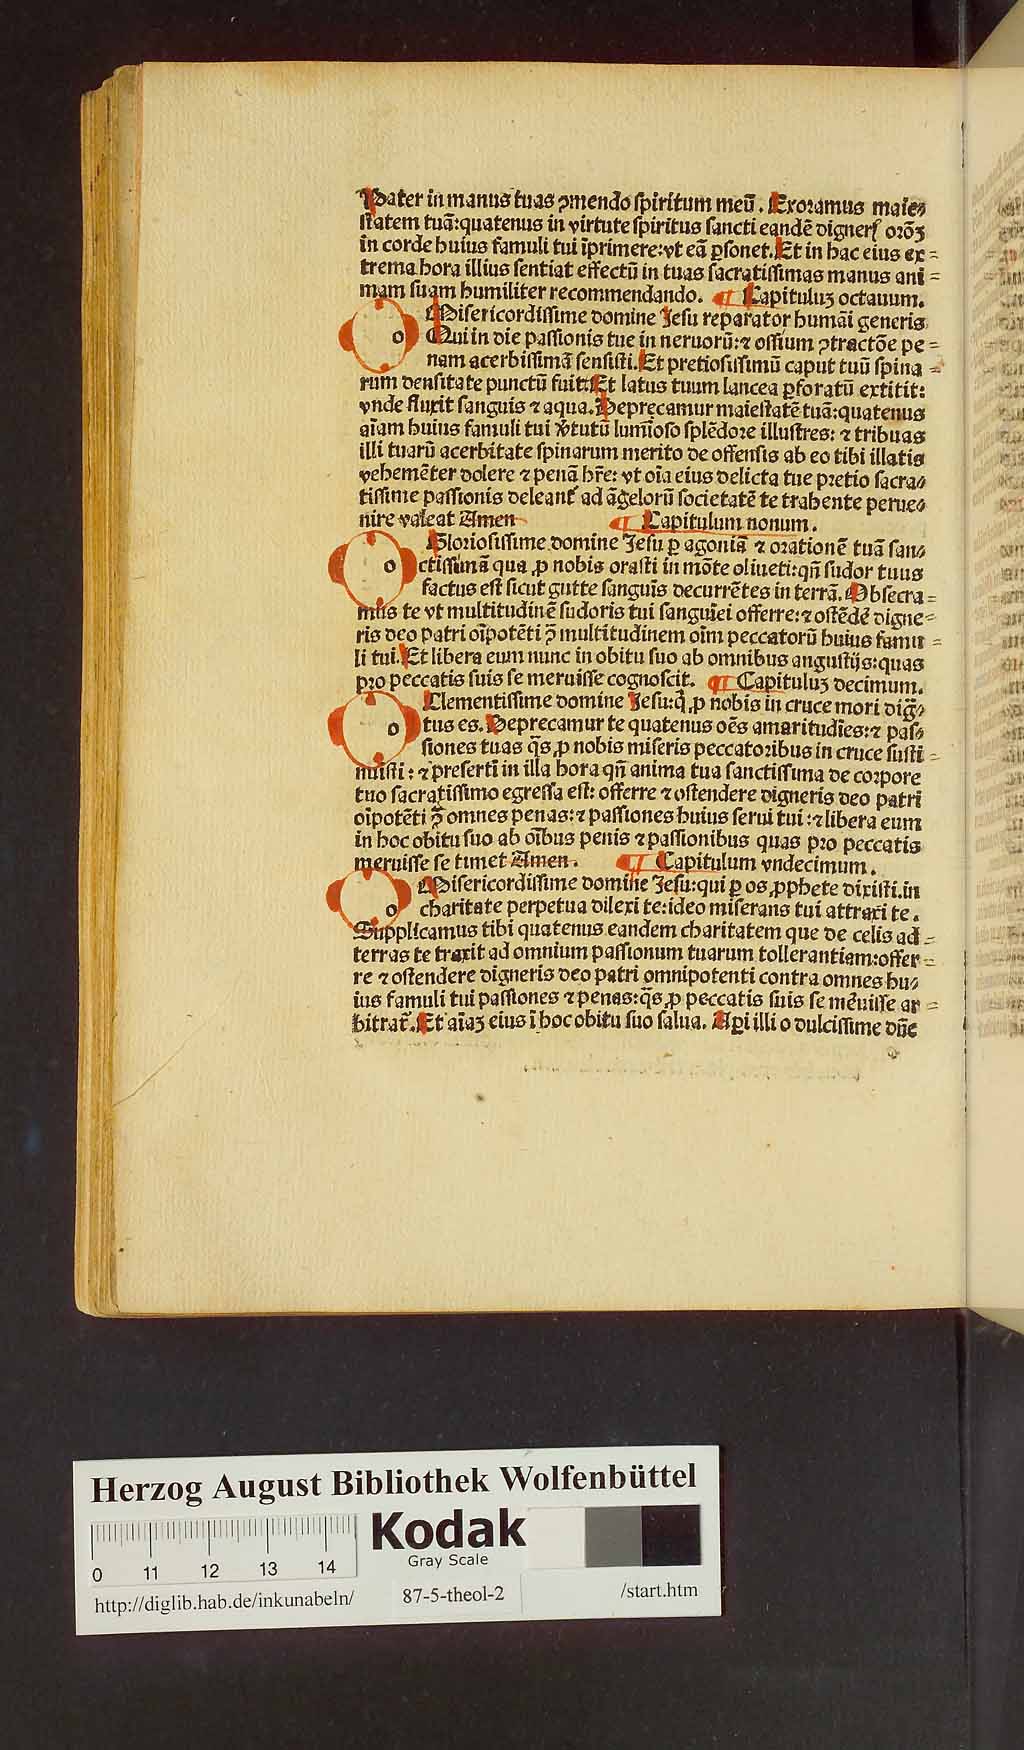 Pater in manus tuas ꝯmendo spiritum meū. Exoramus maie⸗
statem tuā: quatenus in virtute spiritus sancti eandē digner̃ orōꝫ
in corde huius famuli tui īprimere: vt eā ꝑsonet. Et in hac eius ex⸗
trema hora illius sentiat effectū in tuas sacratissimas manus ani⸗
mam suam humiliter recommendando. ¶ Capituluꝫ octauum.
O Misericordissime domine Jesu reparator humāi generis
Qui in die passionis tue in neruorū: ⁊ ossium ꝯtractōe pe⸗
nam acerbissimā sensisti. Et pretiosissimū caput tuū spina⸗
rum densitate punctū fuit: Et latus tuum lancea ꝑforatū extitit:
vnde fluxit sanguis ⁊ aqua. Deprecamur maiestatē tuā: quatenus
aīam huius famuli tui v̾tutū lumīoso splēdore illustres: ⁊ tribuas
illi tuarū acerbitate spinarum merito de offensis ab eo tibi illatis
vehemēter dolere ⁊ penā hr̄e: vt oīa eius delicta tue pretio sacra⸗
tissime passionis deleant᷑ ad āgelorū societatē te trahente perue⸗
nire valeat Amen ¶ Capitulum nonum.
O Gloriosissime domine Jesu ꝑ agoniā ⁊ orationē tuā san⸗
ctissimā qua ꝓ nobis orasti in mōte oliueti: qn̄ sudor tuus
factus est sicut gutte sanguīs decurrētes in terrā. Obsecra⸗
mus te vt multitudinē sudoris tui sanguīei offerre: ⁊ ostēdē digne⸗
ris deo patri oīpotēti ꝯ̄ multitudinem oīm peccatorū huius famu⸗
li tui. Et libera eum nunc in obitu suo ab omnibus angustijs: quas
pro peccatis suis se meruisse cognoscit. ¶ Capituluꝫ decimum.
O Clementissime domine Jesu: q̇ ꝓ nobis in cruce mori dig̃⸗
tus es. Deprecamur te quatenus oēs amaritudīes: ⁊ pas⸗
siones tuas q̄s ꝓ nobis miseris peccatoribus in cruce susti⸗
nuisti: ⁊ presertī in illa hora qn̄ anima tua sanctissima de corpore
tuo sacratissimo egressa est: offerre ⁊ ostendere digneris deo patri
oīpotēti ꝯ̄ omnes penas: ⁊ passiones huius serui tui: ⁊ libera eum
in hoc obitu suo ab oībus penis ⁊ passionibus quas pro peccatis
meruisse se timet Amen. ¶ Capitulum vndecimum.
O Misericordissime domine Jesu: qui ꝑ os ꝓphete dixisti. in
charitate perpetua dilexi te: ideo miserans tui attraxi te.
Supplicamus tibi quatenus eandem charitatem que de celis ad⸗
terras te traxit ad omnium passionum tuarum tollerantiam: offer⸗
re ⁊ ostendere digneris deo patri omnipotenti contra omnes hu⸗
ius famuli tui passiones ⁊ penas: q̄s ꝓ peccatis suis se mēuisse ar⸗
bitrat᷑. Et aīaꝫ eius ī hoc obitu suo salua. Aꝑi illi o dulcissime dn̄e
Herzog August Bibliothek Wolfenbüttel
Kodak
Gray Scale
0 11 12 13 14
http://diglib.hab.de/inkunabeln/ 87-5-theol-2 /start.htm